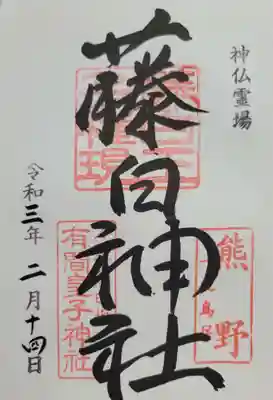 神仏霊場
藤白神社
熊野
有間皇子神社
令和三年 二月十四日